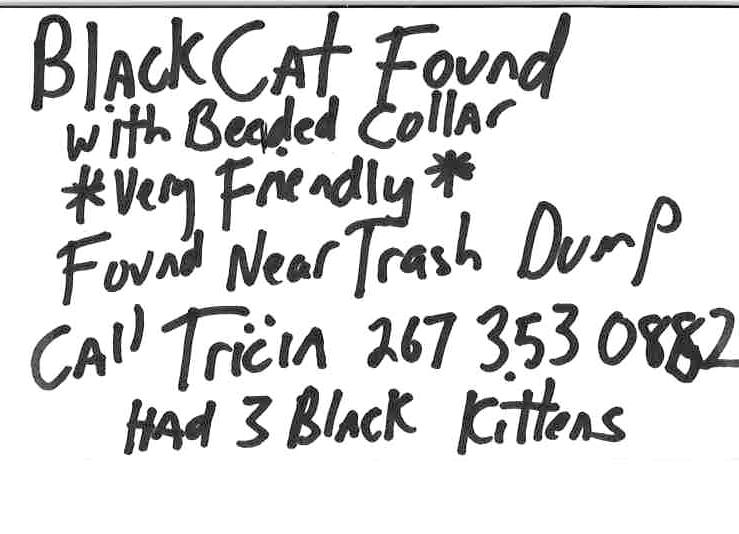 Black Cat Found
with Beaded Collar
*Very Friendly*
Found Near Trash Dump
Call Tricia 267 353 0882
Had 3 Black Kittens